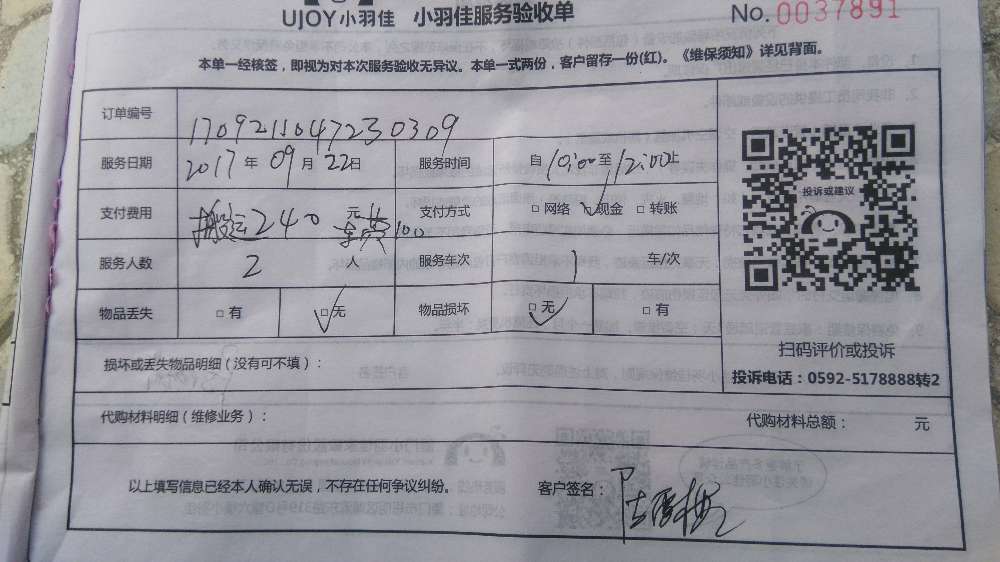 UJOY小羽佳 小羽佳服务验收单 No. 0037891
本单一经核签，即视为对本次服务验收无异议。本单一式两份，客户留存一份(红)。《维保须知》详见背面。
订单编号 1709211047230309
服务日期 2017年09月22日 服务时间 自10:00至12:00止
支付费用 搬运240元 支付方式 □网络 □现金 □转账
100
服务人数 2 人 服务车次 1 车/次
物品丢失 □有 □无 物品损坏 □无 □有
投诉或建议
扫码评价或投诉
投诉电话：0592-5178888转2
损坏或丢失物品明细（没有可不填）：
代购材料明细（维修业务）： 代购材料总额： 元
以上填写信息已经本人确认无误，不存在任何争议纠纷。 客户签名：